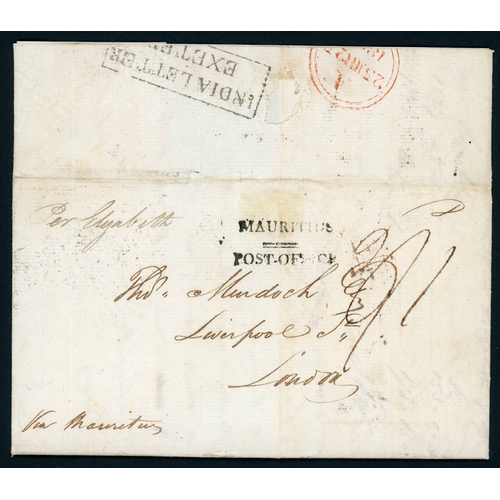 INDIA LETTER
EXETER
Per Elizabeth
MAURITIUS
POST-OFFICE
Thos. Murdoch Esqre
Liverpool St.
London
Via Mauritius